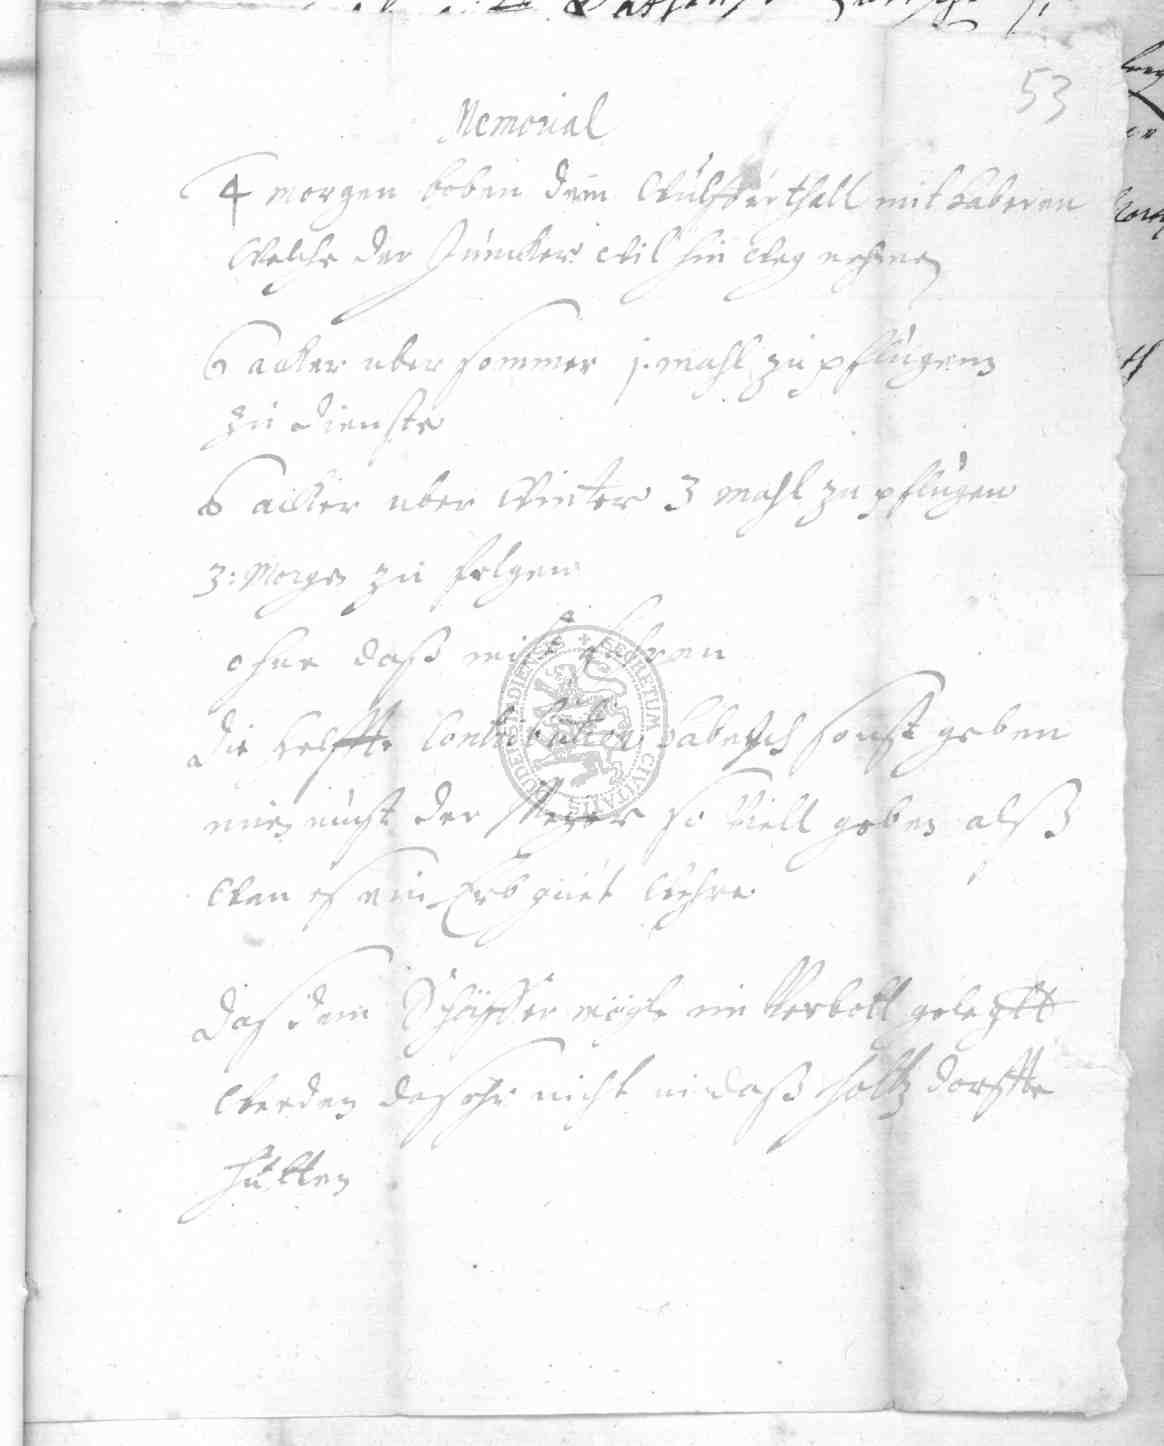 53
Memorial
4 morgen boben dem thall mit haberen
Welche der Juncker wil hin weg nehmen
6 acker uber sommer j. mahl zu pflugen
zu dienste
6 acker uber Winter 3 mahl zu pflugen
3: Morgen zu felgen
ohne daß mist fahren
die helffte Contribution habe ich sonst geben
nun muß der Meyer so Viell geben alß
Wan es ein Erb guet Wehre
das dem Schäffer möchte ein Verbott gelegtt
Werden das ehr nicht in daß holtz dorffte
hütten
SECRETUM CIVITATIS